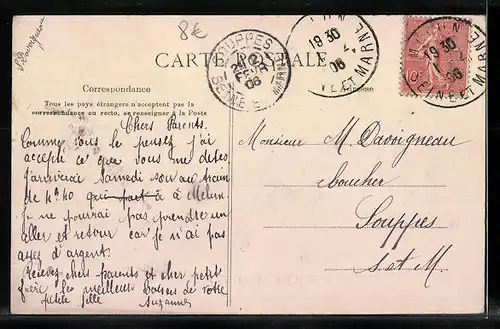 8€
CARTE POSTALE
Correspondance
Tous les pays étrangers n'acceptent pas la
correspondance au recto, se renseigner à la Poste
Adresse
SOUPPES
SEINE ET MARNE
06
MELUN
19 30
06
SEINE ET MARNE
MELUN
19 30
06
SEINE ET MARNE
Chers Parents.
Comme vous le pensez j'ai
accepté ce que vous me dites
j'arriverai Samedi soir au train
de 4h40 qui part à à Melun.
Je ne pourrai pas prendre un
aller et retour car je n'ai pas
assez d'argent.
Recevez chers parents et cher petit
frère les meilleurs baisers de votre
petite fille Suzanne
Monsieur M. Davoigneau
boucher
Souppes
S. et M.